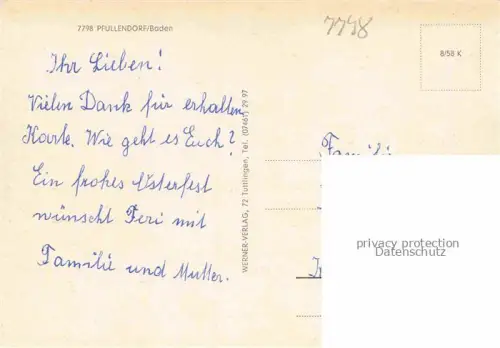 7798 PFULLENDORF/Baden
7798
8/58 K
Ihr Lieben!
Vielen Dank für erhaltene
Karte. Wie geht es Euch?
Ein frohes Osterfest
wünscht Feri mit
Familie und Mutter.
WERNER-VERLAG, 72 Tuttlingen, Tel. (07461) 29 97
Familie
privacy protection
Datenschutz